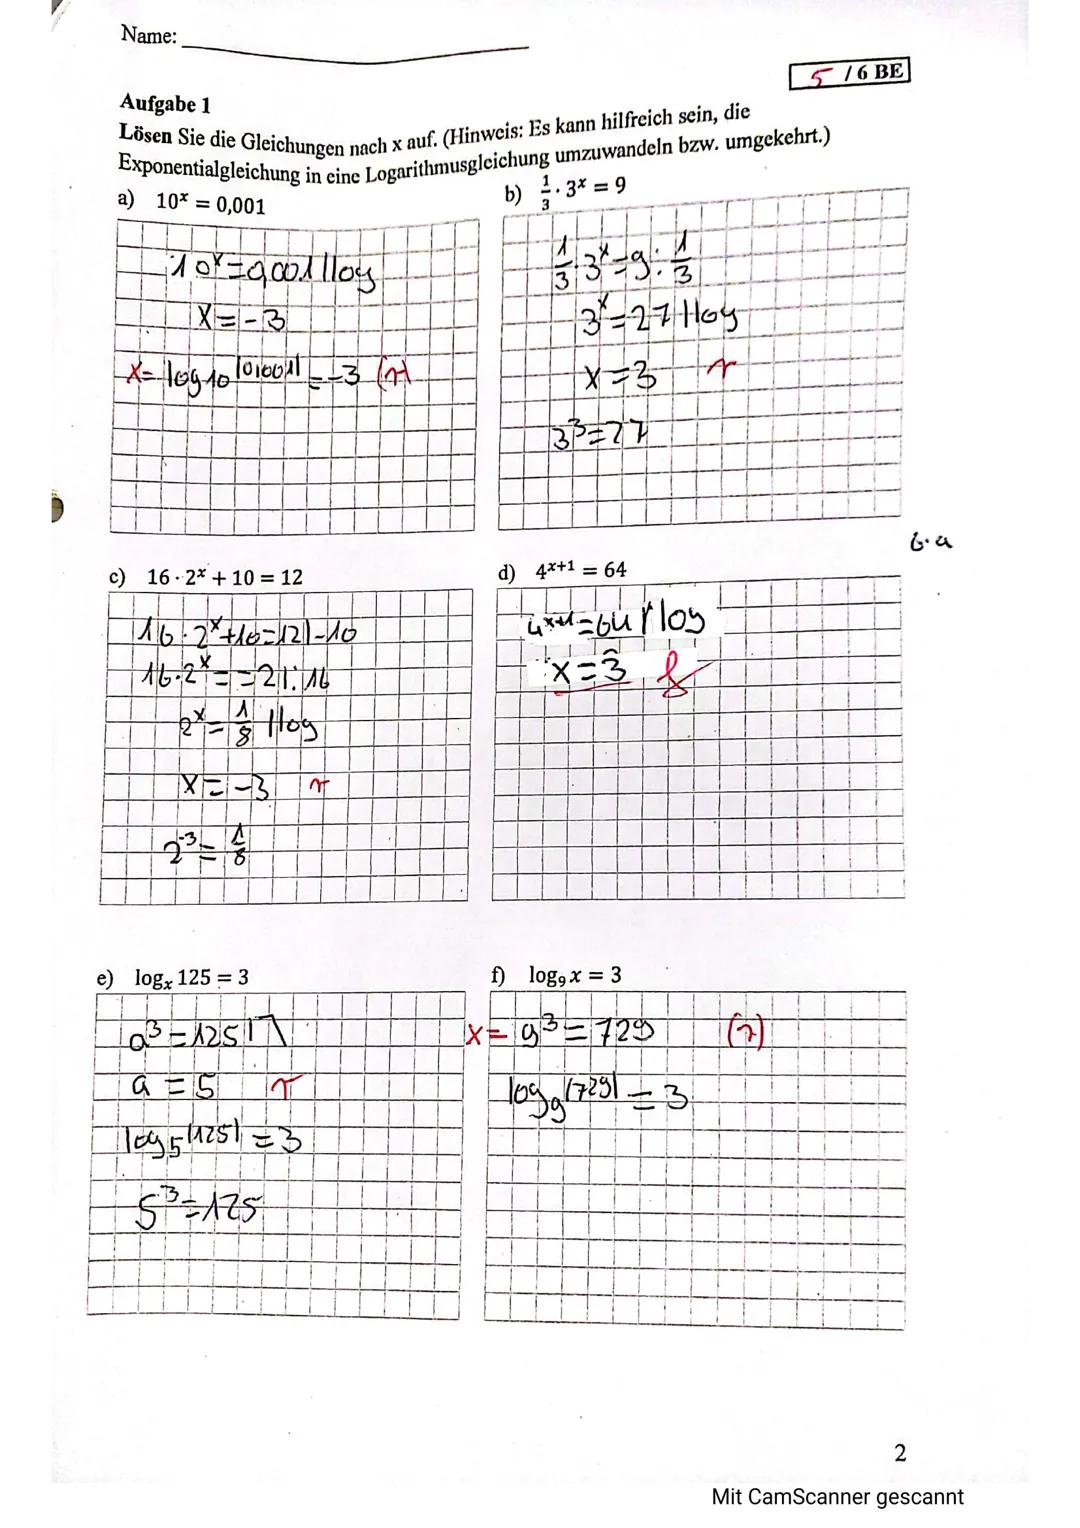 Name:
5 / 6 BE
Aufgabe 1
Lösen Sie die Gleichungen nach x auf. (Hinweis: Es kann hilfreich sein, die
Exponentialgleichung in eine Logarithmusgleichung umzuwandeln bzw. umgekehrt.)
a) 10ˣ = 0,001
10ˣ=0,001 | log
x = -3
x = log₁₀ |0,001| = -3 (r)
b) 1/3 · 3ˣ = 9
1/3 · 3ˣ = 9 : 1/3
3ˣ = 27 | log
x = 3 r
3³ = 27
c) 16 · 2ˣ + 10 = 12
16 · 2ˣ + 10 = 12 | -10
16 · 2ˣ = = 2 | : 16
2ˣ = 1/8 | log
x = -3 r
2⁻³ = 1/8
d) 4ˣ⁺¹ = 64
4ˣ⁺¹ = 64 | log
x = 3 f
e) logₓ 125 = 3
a³ = 125 | √
a = 5 r
log₅ |125| = 3
5³ = 125
f) log₉ x = 3
x = 9³ = 729 (r)
log₉ |729| = 3
2
Mit CamScanner gescannt